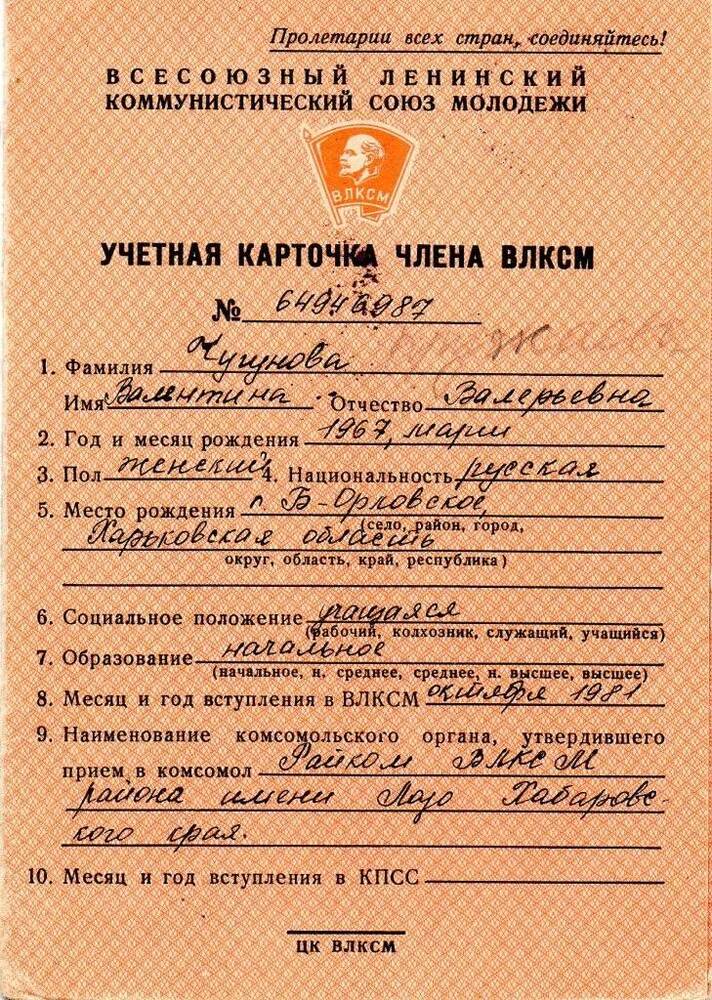 Пролетарии всех стран, соединяйтесь!
ВСЕСОЮЗНЫЙ ЛЕНИНСКИЙ
КОММУНИСТИЧЕСКИЙ СОЮЗ МОЛОДЕЖИ
ВЛКСМ
УЧЕТНАЯ КАРТОЧКА ЧЛЕНА ВЛКСМ
№ 64946987
1. Фамилия Чугунова
Имя Валентина Отчество Валерьевна
2. Год и месяц рождения 1967, март
3. Пол женский 4. Национальность русская
5. Место рождения п. Б-Орловское,
(село, район, город,
Харьковская область
округ, область, край, республика)
6. Социальное положение учащаяся
(рабочий, колхозник, служащий, учащийся)
7. Образование начальное
(начальное, н. среднее, среднее, н. высшее, высшее)
8. Месяц и год вступления в ВЛКСМ октябрь 1981
9. Наименование комсомольского органа, утвердившего
прием в комсомол Райком ВЛКСМ
района имени Лазо Хабаровс-
кого края.
10. Месяц и год вступления в КПСС
ЦК ВЛКСМ